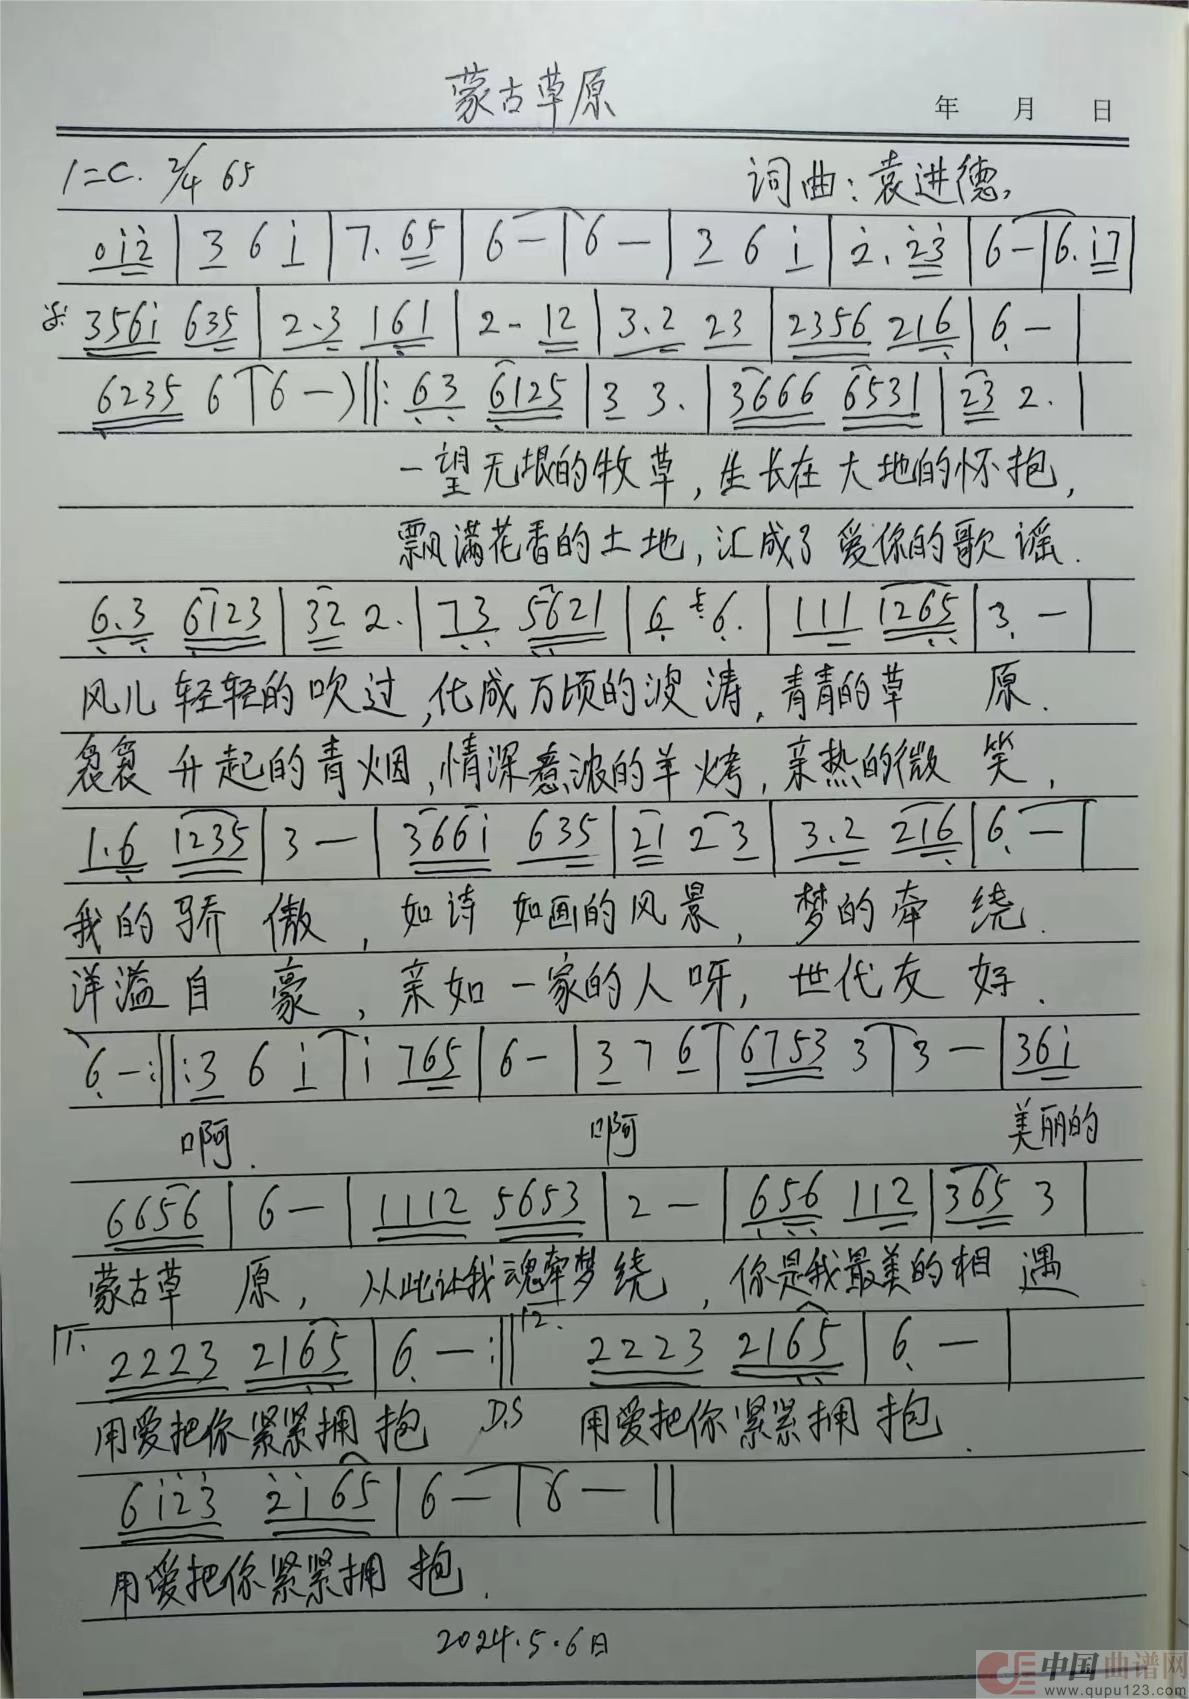 蒙古草原
年 月 日
1=C. 2/4 65
词曲：袁进德.
0i̇2̇ | 3 6 i̇ | 7. 65 | 6 — | 6 — | 3 6 i̇ | 2̇. 2̇3̇ | 6 — | 6. i̇7 |
3 5 6 i̇ 6 3 5 | 2. 3 1 6̣ 1 | 2 - 1 2 | 3. 2 2 3 | 2 3 5 6 2 1 6̣ | 6̣ — |
6235 6 | 6 —) ‖: 6̣3̣ 6̣125 | 3 3. | 3666 6531 | 23 2. |
一望无垠的牧草，生长在大地的怀抱，
飘满花香的土地，汇成了爱你的歌谣.
6̣. 3̣ 6̣123 | 32 2. | 7̣3̣ 5̣6̣21 | 6̣ 6̣. | 111 126̣5̣ | 3̣ — |
风儿轻轻的吹过，化成万顷的波涛，青青的草 原.
袅袅升起的青烟，情深意浓的羊烤，亲热的微 笑，
1. 6̣ 1235 | 3 — | 366i̇ 635 | 21 2 3 | 3. 2 216̣ | 6̣ — |
我的骄 傲，如诗 如画的风景，梦的牵 绕.
洋溢自 豪，亲如一家的人呀，世代友 好.
6̣ — :‖: 3 6 i̇ | i̇ 765 | 6 — | 3 7 6 | 6753 3 | 3 — | 36i̇
啊. 啊 美丽的
6656 | 6 — | 1112 5653 | 2 — | 6̣5̣6̣ 112 | 365 3 |
蒙古草 原，从此让我魂牵梦绕，你是我最美的相 遇
1. 2223 216̣5̣ | 6̣ — :‖ 2. 2223 216̣5̣ | 6̣ — |
用爱把你紧紧拥 抱 D.S 用爱把你紧紧拥 抱.
6i̇2̇3̇ 2̇i̇65 | 6 — | 6 — ‖
用爱把你紧紧拥 抱.
2024.5.6日
中国曲谱网
www.qupu123.com